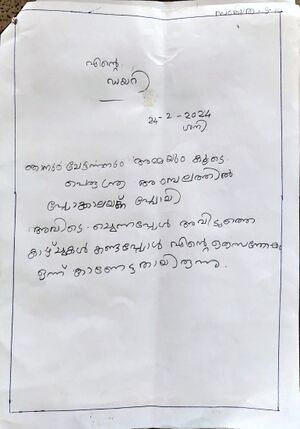 എന്റെ
ഡയറി
24-2-2024
ശനി
ഞാനും ചേട്ടനും അമ്മയും കൂടെ
പെരുന്ത്ര അമ്പലത്തിൽ
പോയി
അവിടെ ചെന്നപ്പോൾ അവിടുത്തെ
കാഴ്ചകൾ കണ്ടപ്പോൾ എന്റെ
ഒന്ന് കാണേണ്ടതായിരുന്നു.